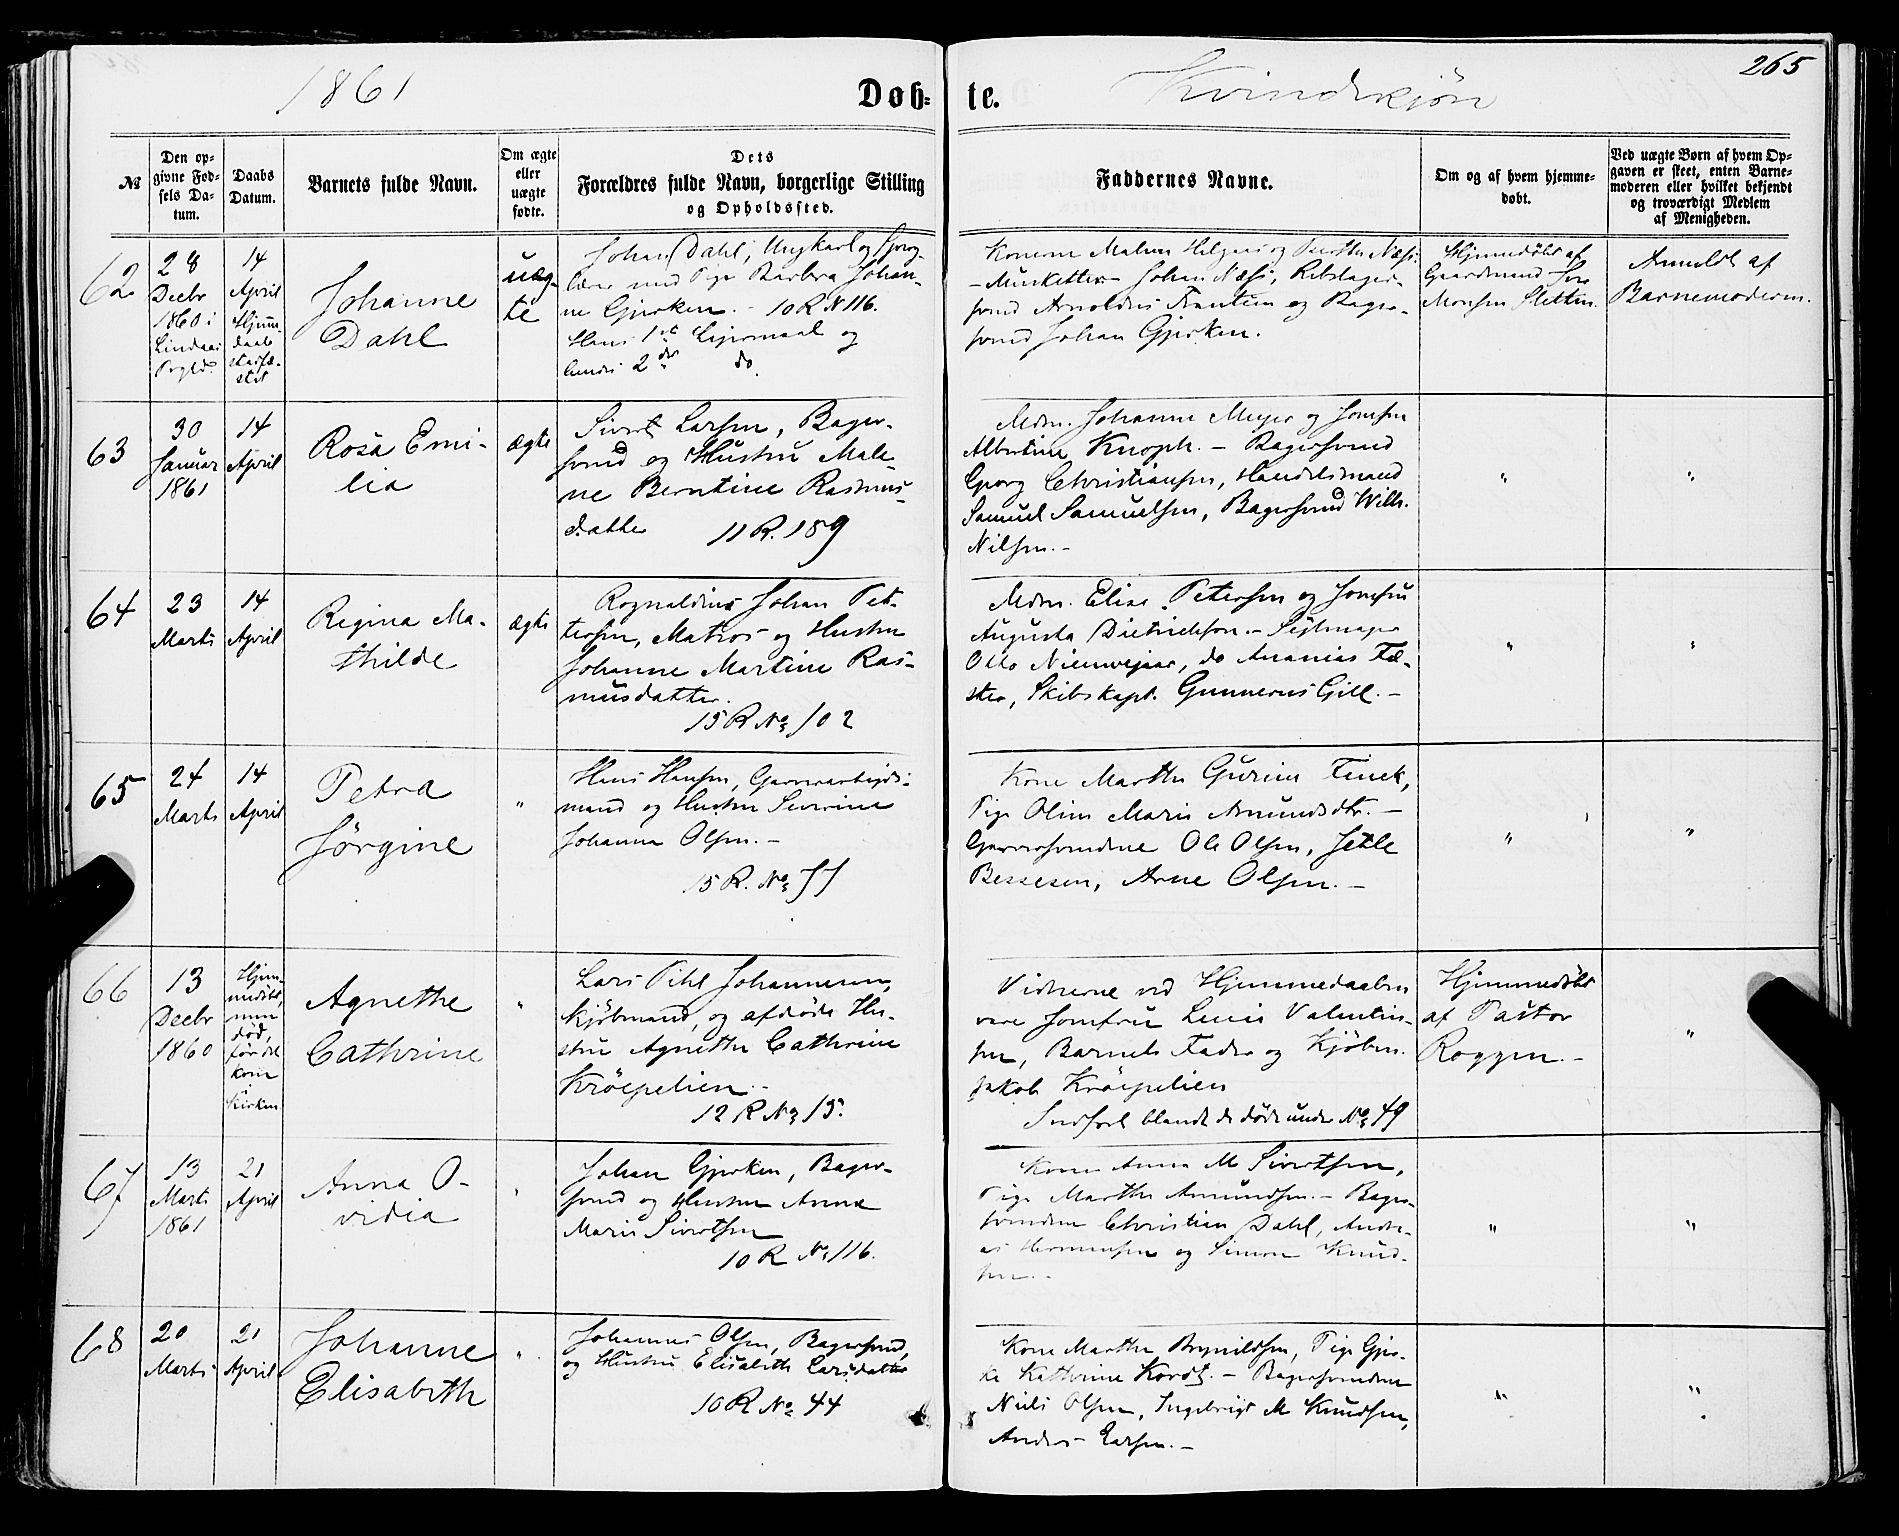 1861
Døb-
te.
Kvindekjøn
265
№
Den op-
givne Fød-
sels Da-
tum.
Daabs
Datum.
Barnets fulde Navn.
Om ægte
eller
uægte
fødte.
Dets
Forældres fulde Navn, borgerlige Stilling
og Opholdssted.
Faddernes Navne.
Om og af hvem hjemme-
døbt.
Ved uægte Børn af hvem Op-
gaven er skeet, enten Barne-
moderen eller hvilket bekjendt
og troværdigt Medlem
af Menigheden.
62
28
Decbr
1860 i
Lindaas
Prgld.
14
April
Hjem-
daab
stadfæ-
stet
Johanne
Dahl
uæg-
te
Johan Dahl, Ungkarl og
med Pige Barbra Johan-
ne Gjerken. - 10 R № 116.
Hans 1ste Leiermaal og
hendes 2det do.
Konerne Malene Helgaas og Marthe Næss:
- Musketter Johan Næss, Rebslager-
svend Arnoldus Frantzen og Bager-
svend Johan Gjerken.
Hjemmedøbt af
Gaardmand
Monsen Sletten.
Anmeldt af
Barnemoderen.
63
30
Januar
1861
14
April
Rosa Emi-
lia
ægte
Sivert Larsen, Bager-
svend og Hustru Male-
ne Berntine Rasmus-
datter 11 R. 189
Mdm. Johanne Meyer og Jomfru
Albertine Knoph. - Bagersvend
Georg Christiansen, Handelsmand
Samuel Samuelsen, Bagersvend Wilh.
Nilsen. -
"
"
64
23
Marts
14
April
Regina Ma-
thilde
ægte
Rognaldius Johan Pet-
tersen, Matros og Hustru
Johanne Martine Ras-
musdatter.
15 R № 102
Mdm. Elise Petersen og Jomfru
Augusta Dietrichson. - Seilmager
Otto Niemvejaar, do Ananias Fæ-
ster, Skibskapt. Gunnerus Gill. -
"
"
65
24
Marts
14
April
Petra
Jørgine
"
Hans Hansen, Garverarbeids-
mand og Hustru Severine
Johanna Olsen. -
15 R. № 77
Kone Marthe Gurine Finck,
Pige Oline Marie Amundsdtr. -
Garversvendene Ole Olsen, Jetle
Bessesen, Arne Olsen. -
"
"
66
13
Decbr
1860
Hjem-
medøbt,
men
død,
før det
kom
i
Kirken
Agnethe
Cathrine
"
Lars Pihl Johannesen,
Kjøbmand, og afdøde Hu-
stru Agnethe Cathrine
Krøepelien. -
12 R № 15.
Vidnerne ved Hjemmedaaben
vare Jomfru Lucie Valentin-
sen, Barnets Fader og Kjøbm.
Jakob Krøepelien
Indført blandt de døde under № 49
Hjemmedøbt
af Pastor
Roggen. -
"
67
13
Marts
1861
21
April
Anna O-
vidia
"
Johan Gjerken, Bager-
svend og Hustru Anna
Marie Sivertsen
10 R № 116.
Kone Anna M Sivertsen,
Pige Marthe Amundsen. - Bager-
svendene Christian Dahl, Andre-
as Hermansen og Simon Knud-
sen. -
"
"
68
20
Marts
21
April
Johanne
Elisabeth
"
Johannes Olsen, Bagersvend,
og Hustru Elisabeth Larsdatter
10 R № 44
Kone Marthe Brynildsen, Pige Gjer-
ke Kathrine Kordt. - Bagersvendene
Niels Olsen, Ingebrigt M Knudsen,
Anders Larsen. -
"
"